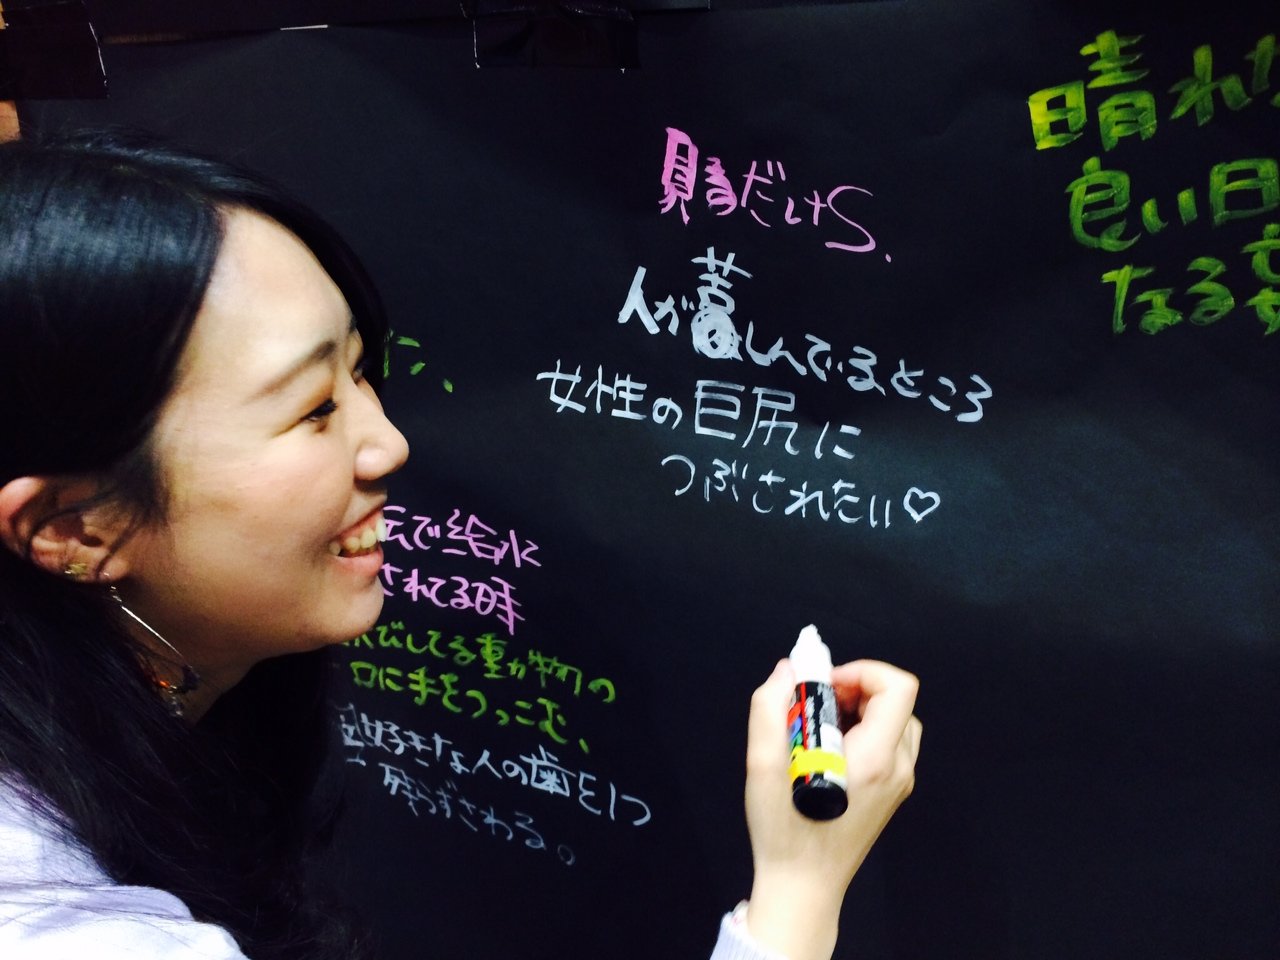 晴れ
良い日
なる
だけS.
人が苦しんでいるところ
女性の巨尻に
つぶされたい♡
で給水
されてる時
びしてる動物の
口に手をつっこむ、
好きな人の歯を1つ
残らずさわる。